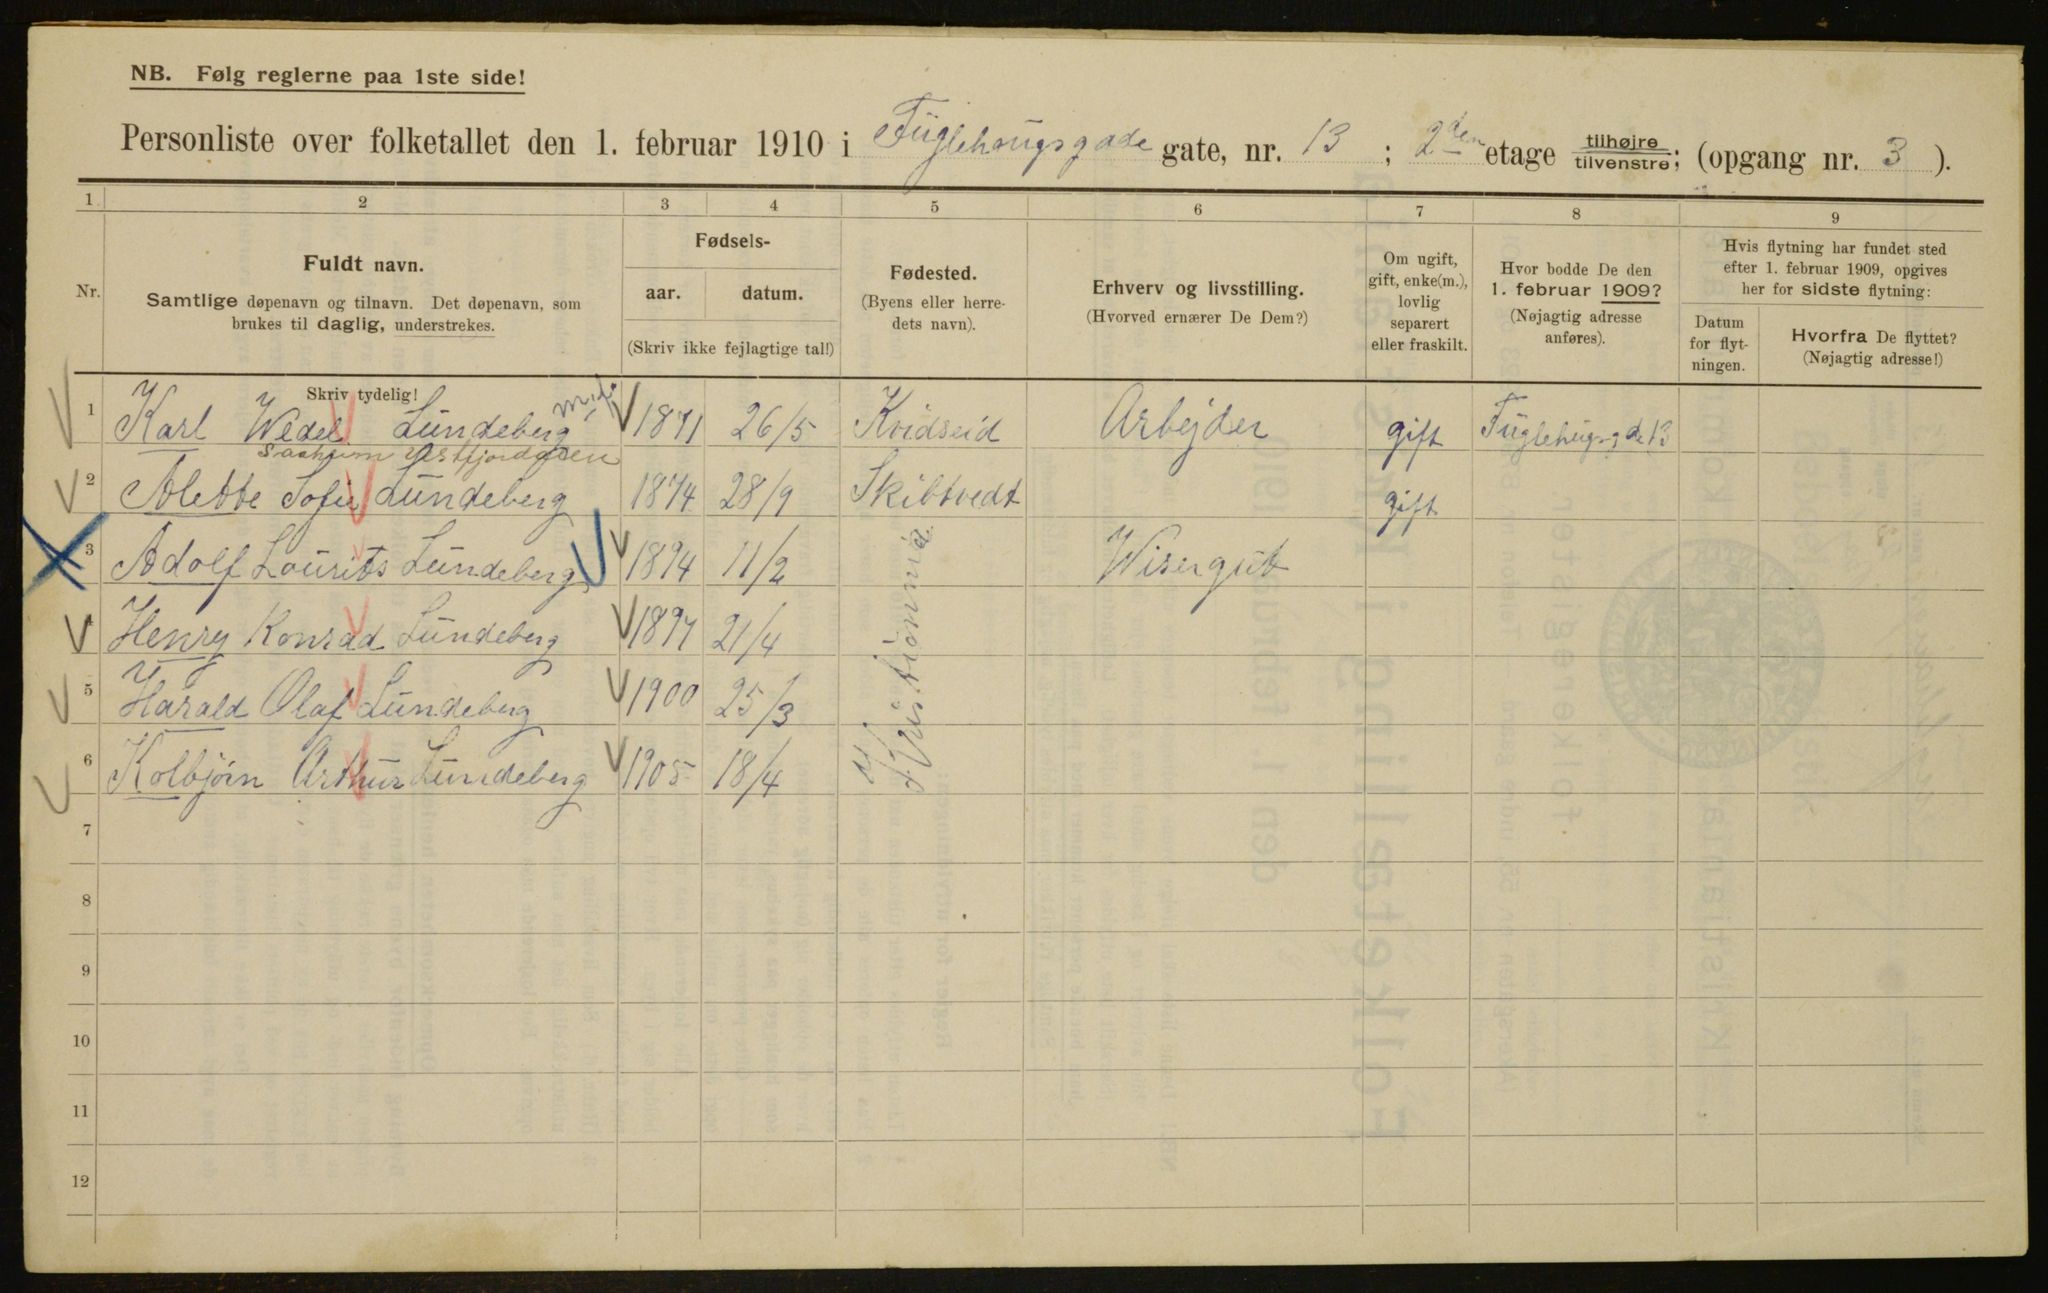 NB. Følg reglerne paa 1ste side!
Personliste over folketallet den 1. februar 1910 i Fuglehaugsgade gate, nr. 13 ; 2den etage tilhøjre tilvenstre; (opgang nr. 3 ).
1 2 3 4 5 6 7 8 9
Nr.
Fuldt navn.
Samtlige døpenavn og tilnavn. Det døpenavn, som
brukes til daglig, understrekes.
Skriv tydelig!
Fødsels-
aar. datum.
(Skriv ikke fejlagtige tal!)
Fødested.
(Byens eller herre-
dets navn).
Erhverv og livsstilling.
(Hvorved ernærer De Dem?)
Om ugift,
gift, enke(m.),
lovlig
separert
eller fraskilt.
Hvor bodde De den
1. februar 1909?
(Nøjagtig adresse
anføres).
Hvis flytning har fundet sted
efter 1. februar 1909, opgives
her for sidste flytning:
Datum
for flyt-
ningen.
Hvorfra De flyttet?
(Nøjagtig adresse!)
1 Karl Wedel Lundeberg midl. 1871 26/5 Kvidseid Arbejder gift Fuglehugsgde 13
Saaheim Vestfjorddalen
2 Alette Sofie Lundeberg 1874 28/9 Skibtvedt gift
3 Adolf Lourits Lundeberg 1894 11/2 Wisergut
4 Henry Konrad Lundeberg 1897 21/4
5 Harald Olaf Lundeberg 1900 25/3
6 Kolbjørn Arthur Lundeberg 1905 18/4
Kristiania
7
8
9
10
11
12